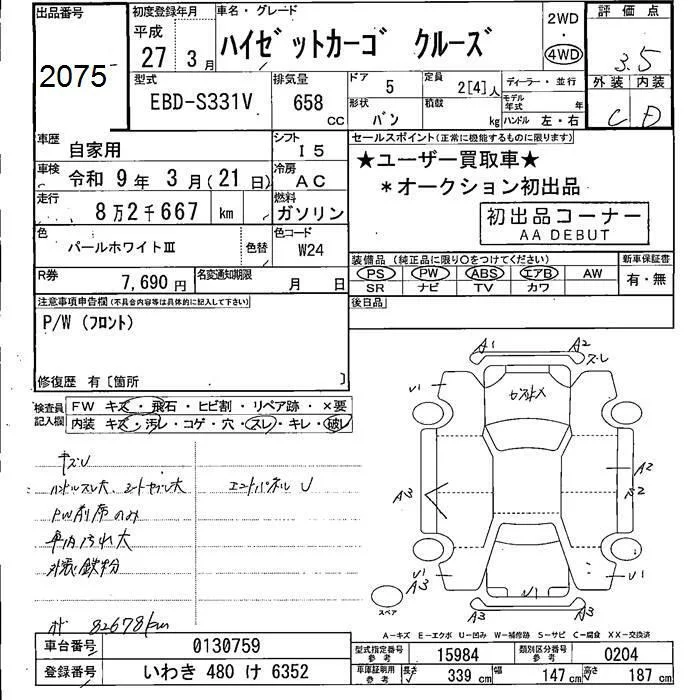 出品番号
2075
初度登録年月
平成
27年 3月
車名・グレード
ハイゼットカーゴ クルーズ
2WD
・
4WD
評価点
3.5
外装 内装
C D
型式
EBD-S331V
排気量
658 cc
ドア
5
形状
バン
定員
2[4]人
積載
kg
ディーラー・並行
モデル年式 年
ハンドル 左・右
車歴
自家用
シフト
I5
車検
令和 9年 3月(21日)
冷房
AC
走行
8万2千667 km
燃料
ガソリン
色
パールホワイトⅢ
色替
色コード
W24
R券
7,690円
名変通知期限
月 日
セールスポイント(正常に機能するものに限ります)
★ユーザー買取車★
*オークション初出品
初出品コーナー
AA DEBUT
装備品(純正品に限り○をつけてください)
PS PW ABS エアB AW
SR ナビ TV カワ
新車保証書
有・無
後日品
注意事項申告欄(不具合内容等は具体的に記入して下さい)
P/W (フロント)
修復歴 有〔箇所 〕
検査員記入欄
FW キズ・飛石・ヒビ割・リペア跡・×要
内装 キズ・汚レ・コゲ・穴・スレ・キレ・破レ
キズU
ハンドルスレ大、シートヤブレ大
エンドパネル U
PW前席のみ
車内汚れ大
外装鉄粉
82678km
A1 A2
ズレ
U1 V1
A2
A3
U1 A3
V1
U1
A3
スペア
A-キズ E-エクボ U-凹み W-補修跡 S-サビ C-腐食 XX-交換済
車台番号
0130759
登録番号
いわき 480 け 6352
型式指定番号
参考
15984
類別区分番号
参考
0204
車庫証明用
参考
長さ 339 cm 幅 147 cm 高さ 187 cm